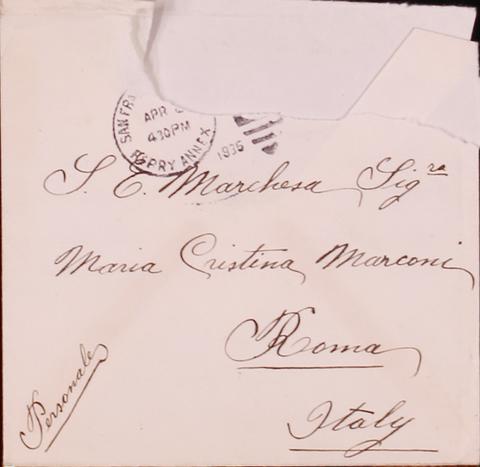 SAN FR
APR
430 PM
FERRY ANNEX
1935
S. E. Marchesa Sigra
Maria Cristina Marconi
Roma
Italy
Personale